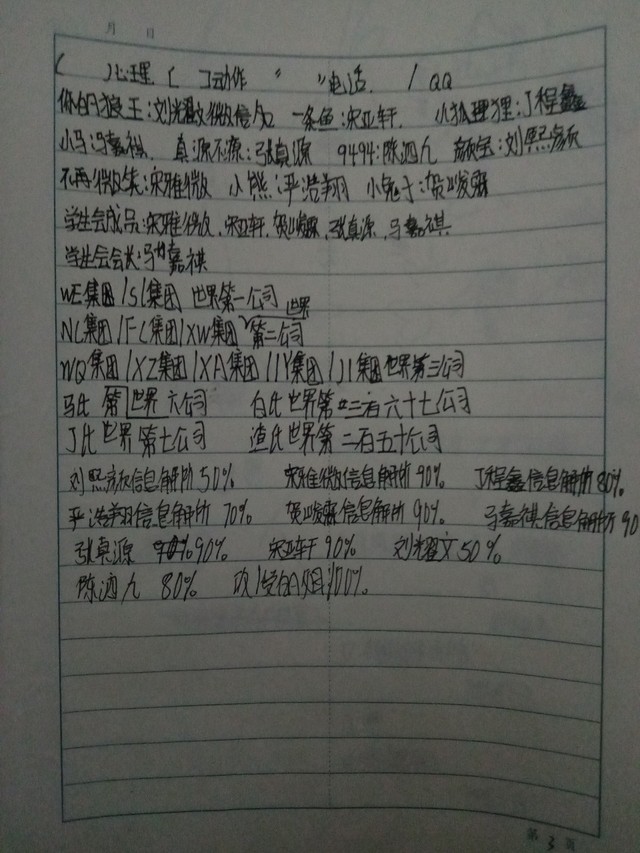 月 日
( )心理 [ ]动作 “ ”电话. / QQ
你的狼王:刘耀文(微信名 一条鱼:宋亚轩. 小狐狸:丁程鑫
小马:马嘉祺. 真源不凉:张真源 9494:陈泗 颜宝:刘熙颜
不再微笑:宋雅微 小熊:严浩翔 小兔子:贺峻霖
学生会成员:宋雅微,宋亚轩,贺峻霖,张真源,马嘉祺.
学生会会长:马嘉祺
WE集团/SL集团 世界第一公司
NC集团/FC集团/XW集团 世界第二公司
WQ集团/XZ集团/XA集团/JY集团/JI集团世界第三公司
马氏 第世界六公司 白氏世界第二百六十七公司
丁氏世界第七公司 渣氏世界第二百五十公司
刘熙颜信息解析50% 宋雅微信息解析90% 丁程鑫信息解析80%
严浩翔信息解析70% 贺峻霖信息解析90% 马嘉祺信息解析90
张真源 90% 宋亚轩90% 刘耀文50%
陈泗 80% 100%
第3页